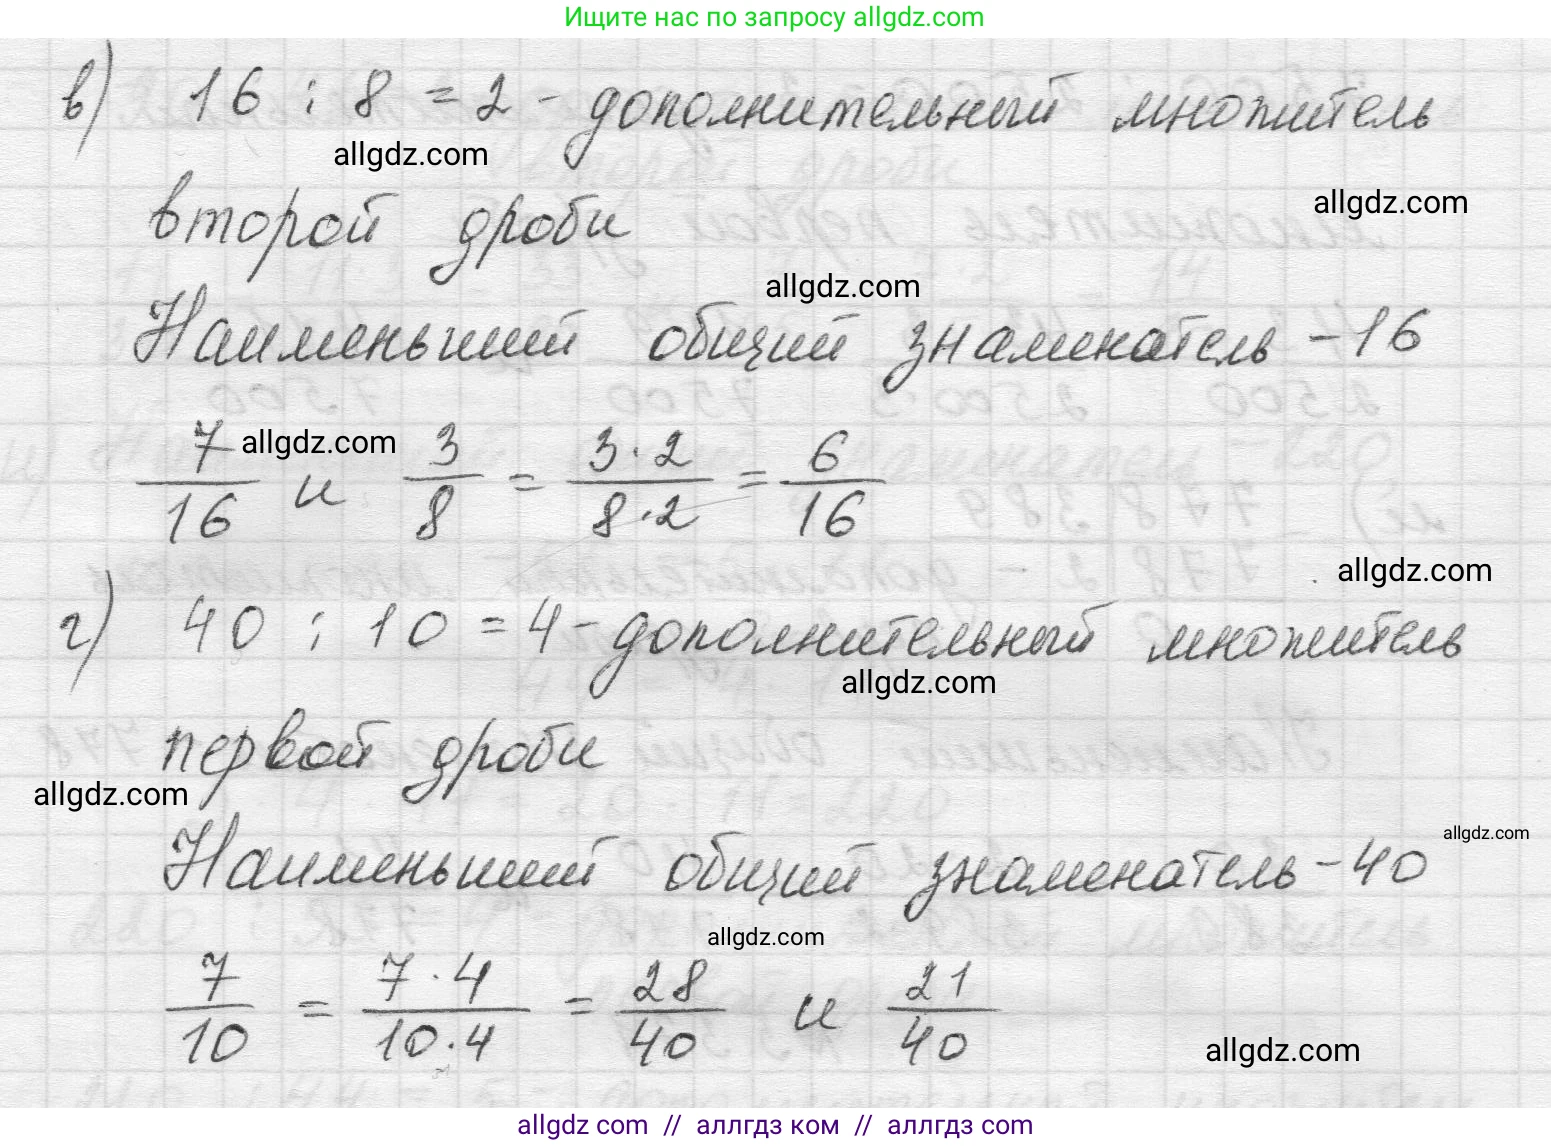 Ищите нас по запросу allgdz.com
в) 16 : 8 = 2 - дополнительный множитель
allgdz.com
второй дроби
allgdz.com
allgdz.com
Наименьший общий знаменатель - 16
7/16 и 3/8 = 3·2/8·2 = 6/16
allgdz.com
allgdz.com
г) 40 : 10 = 4 - дополнительный множитель
allgdz.com
первой дроби
allgdz.com
allgdz.com
Наименьший общий знаменатель - 40
allgdz.com
7/10 = 7·4/10·4 = 28/40 и 21/40
allgdz.com
allgdz.com // аллгдз ком // аллгдз com